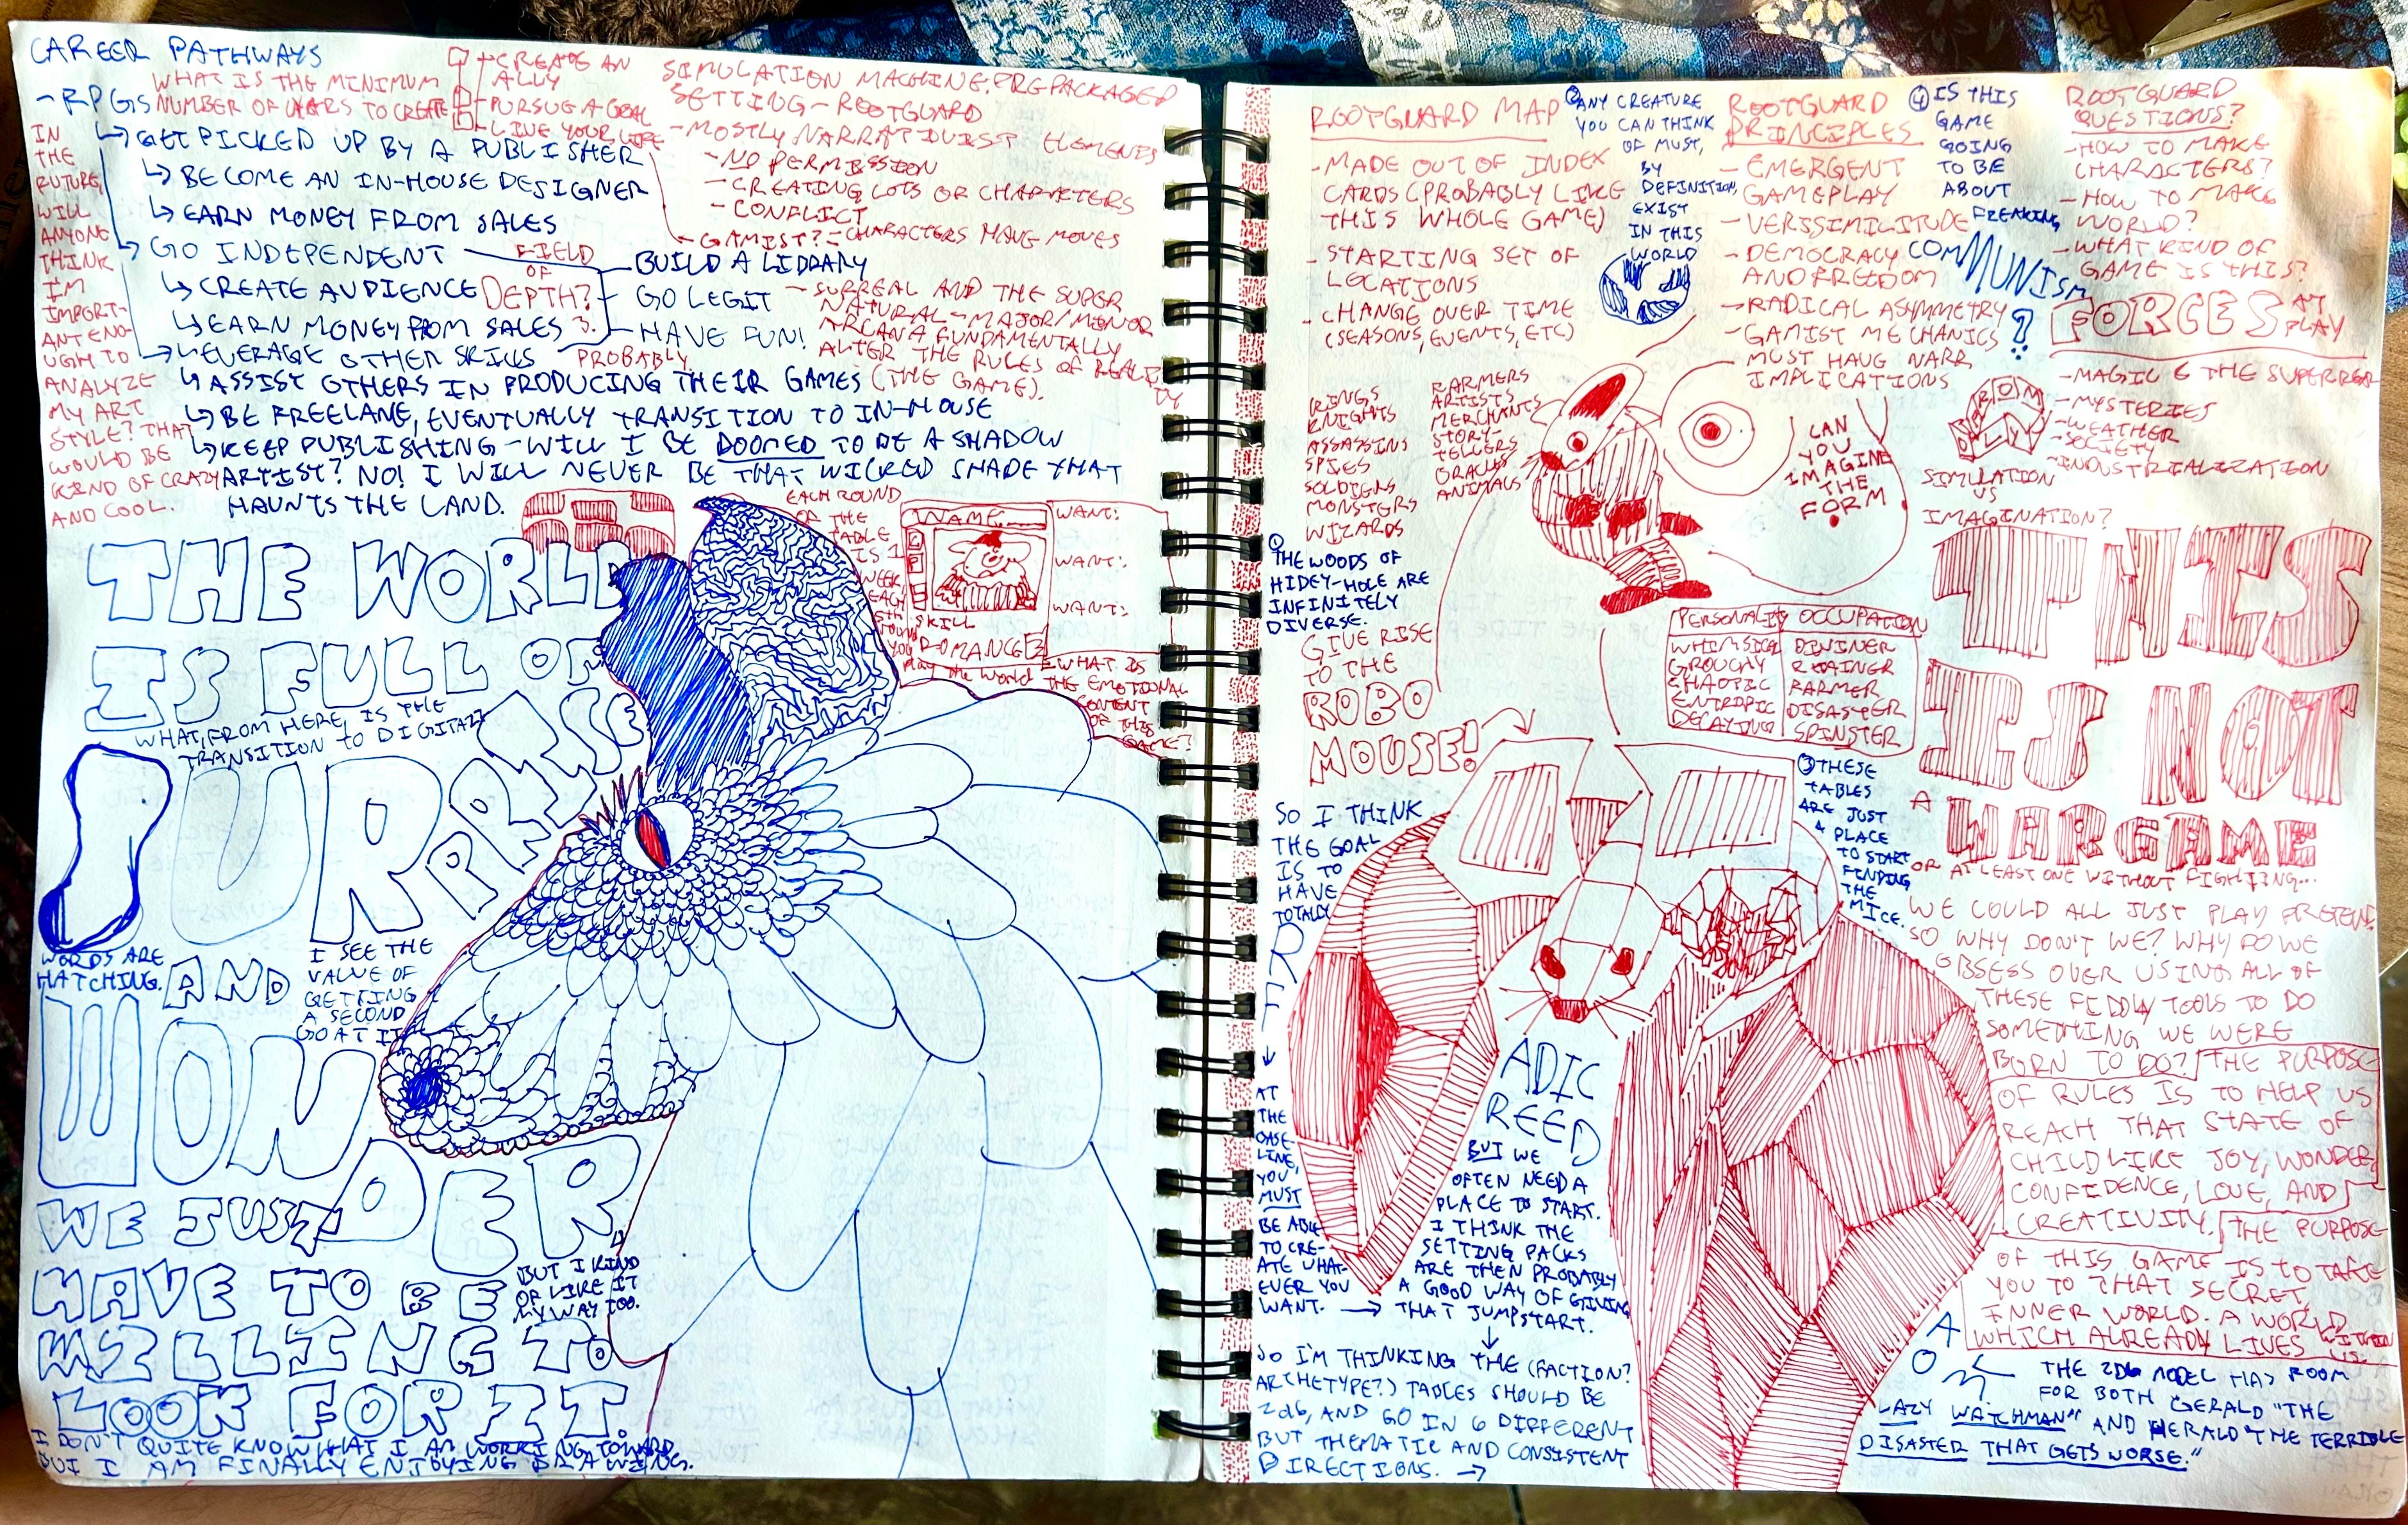 CAREER PATHWAYS
- RPGS
↳ GET PICKED UP BY A PUBLISHER
↳ BECOME AN IN-HOUSE DESIGNER
↳ EARN MONEY FROM SALES
↳ GO INDEPENDENT
↳ CREATE AUDIENCE
↳ EARN MONEY FROM SALES
BUILD A LIBRARY
GO LEGIT
HAVE FUN!
↳ LEVERAGE OTHER SKILLS
↳ ASSIST OTHERS IN PRODUCING THEIR GAMES
↳ BE FREELANE, EVENTUALLY TRANSITION TO IN-HOUSE
↳ KEEP PUBLISHING - WILL I BE DOOMED TO BE A SHADOW
ARTIST? NO! I WILL NEVER BE THAT WICKED SHADE THAT
HAUNTS THE LAND.
WHAT IS THE MINIMUM
NUMBER OF WORDS TO CREATE
CREATE AN
ALLY
PURSUE A GOAL
LIVE YOUR LIFE
IN
THE
FUTURE,
WILL
ANYONE
THINK
I'M
IMPORT-
ANT ENO-
UGH TO
ANALYZE
MY ART
STYLE? THAT
WOULD BE
KIND OF CRAZY
AND COOL.
FIELD
OF
DEPTH?
3.
PROBABLY
(THE GAME).
SIMULATION MACHINE. PREPACKAGED
SETTING - ROOTGUARD
- MOSTLY NARRATIVIST ELEMENTS
- NO PERMISSION
- CREATING LOTS OF CHARACTERS
- CONFLICT
- GAMIST? - CHARACTERS HAVE MOVES
- SURREAL AND THE SUPER
NATURAL - MAJOR/MINOR
ARCANA FUNDAMENTALLY
ALTER THE RULES OF REALI-
TY
EACH ROUND
OF THE
TABLE
IS 1
WEEK
EACH
5th
round
you
play the world
NAME
WANT:
WANT:
WANT:
SKILL
ROMANCE 3
WHAT IS
THE EMOTIONAL
CONTENT
OF THIS
GAME?
THE WORLD
IS FULL OF
SURPRISE
AND
WONDER
WE JUST
HAVE TO BE
WILLING TO
LOOK FOR IT.
WHAT, FROM HERE, IS THE
TRANSITION TO DIGITAL?
WORDS ARE
HATCHING.
I SEE THE
VALUE OF
GETTING
A SECOND
GO AT IT
BUT I KIND
OF LIKE IT
MY WAY TOO.
I DON'T QUITE KNOW WHAT I AM WORKING TOWARD,
BUT I AM FINALLY ENJOYING DRAWING.
ROOTGUARD MAP
- MADE OUT OF INDEX
CARDS (PROBABLY LIKE
THIS WHOLE GAME)
- STARTING SET OF
LOCATIONS
- CHANGE OVER TIME
(SEASONS, EVENTS, ETC)
② ANY CREATURE
YOU CAN THINK
OF MUST,
BY
DEFINITION,
EXIST
IN THIS
WORLD
ROOTGUARD
PRINCIPLES
- EMERGENT
GAMEPLAY
- VERISSIMILITUDE
- DEMOCRACY
AND FREEDOM
- RADICAL ASYMMETRY
- GAMIST MECHANICS
MUST HAVE NARR.
IMPLICATIONS
④ IS THIS
GAME
GOING
TO BE
ABOUT
FREAKING
COMMUNISM
?
ROOTGUARD
QUESTIONS?
- HOW TO MAKE
CHARACTERS?
- HOW TO MAKE
WORLD?
- WHAT KIND OF
GAME IS THIS?
FORCES AT
PLAY
- MAGIC & THE SUPERNAT
- MYSTERIES
- WEATHER
- SOCIETY
- INDUSTRIALIZATION
KINGS
KNIGHTS
ASSASSINS
SPIES
SOLDIERS
MONSTERS
WIZARDS
FARMERS
ARTISTS
MERCHANTS
STORY-
TELLERS
ORACLES
ANIMALS
CAN
YOU
IMAGINE
THE
FORM
SIMULATION
VS
IMAGINATION?
① THE WOODS OF
HIDEY-HOLE ARE
INFINITELY
DIVERSE.
GIVE RISE
TO THE
ROBO
MOUSE!
PERSONALITY OCCUPATION
WHIMSICAL DIVINER
GROUCHY RETAINER
CHAOTIC FARMER
ENTROPIC DISASTER
DECAYING SPINSTER
THIS
IS NOT
A WARGAME
OR AT LEAST ONE WITHOUT FIGHTING...
③ THESE
TABLES
ARE JUST
A
PLACE
TO START
FINDING
THE
MICE.
WE COULD ALL JUST PLAY PRETEND.
SO WHY DON'T WE? WHY DO WE
OBSESS OVER USING ALL OF
THESE FIDDLY TOOLS TO DO
SOMETHING WE WERE
BORN TO DO? THE PURPOSE
OF RULES IS TO HELP US
REACH THAT STATE OF
CHILDLIKE JOY, WONDER,
CONFIDENCE, LOVE, AND
CREATIVITY. THE PURPOSE
OF THIS GAME IS TO TAKE
YOU TO THAT SECRET
INNER WORLD. A WORLD
WHICH ALREADY LIVES WITHIN
US.
SO I THINK
THE GOAL
IS TO
HAVE
TOTALLY
R
F
ADIC
REED
↓
AT
THE
BASE-
LINE,
YOU
MUST
BE ABLE
TO CRE-
ATE WHAT-
EVER YOU
WANT. →
BUT WE
OFTEN NEED A
PLACE TO START.
I THINK THE
SETTING PACKS
ARE THEN PROBABLY
A GOOD WAY OF GIVING
THAT JUMPSTART.
↓
SO I'M THINKING THE (FACTION?
ARCHETYPE?) TABLES SHOULD BE
2d6, AND GO IN 6 DIFFERENT
BUT THEMATIC AND CONSISTENT
DIRECTIONS. →
THE 2D6 MODEL HAS ROOM
FOR BOTH GERALD "THE
LAZY WATCHMAN" AND HERALD "THE TERRIBLE
DISASTER THAT GETS WORSE."